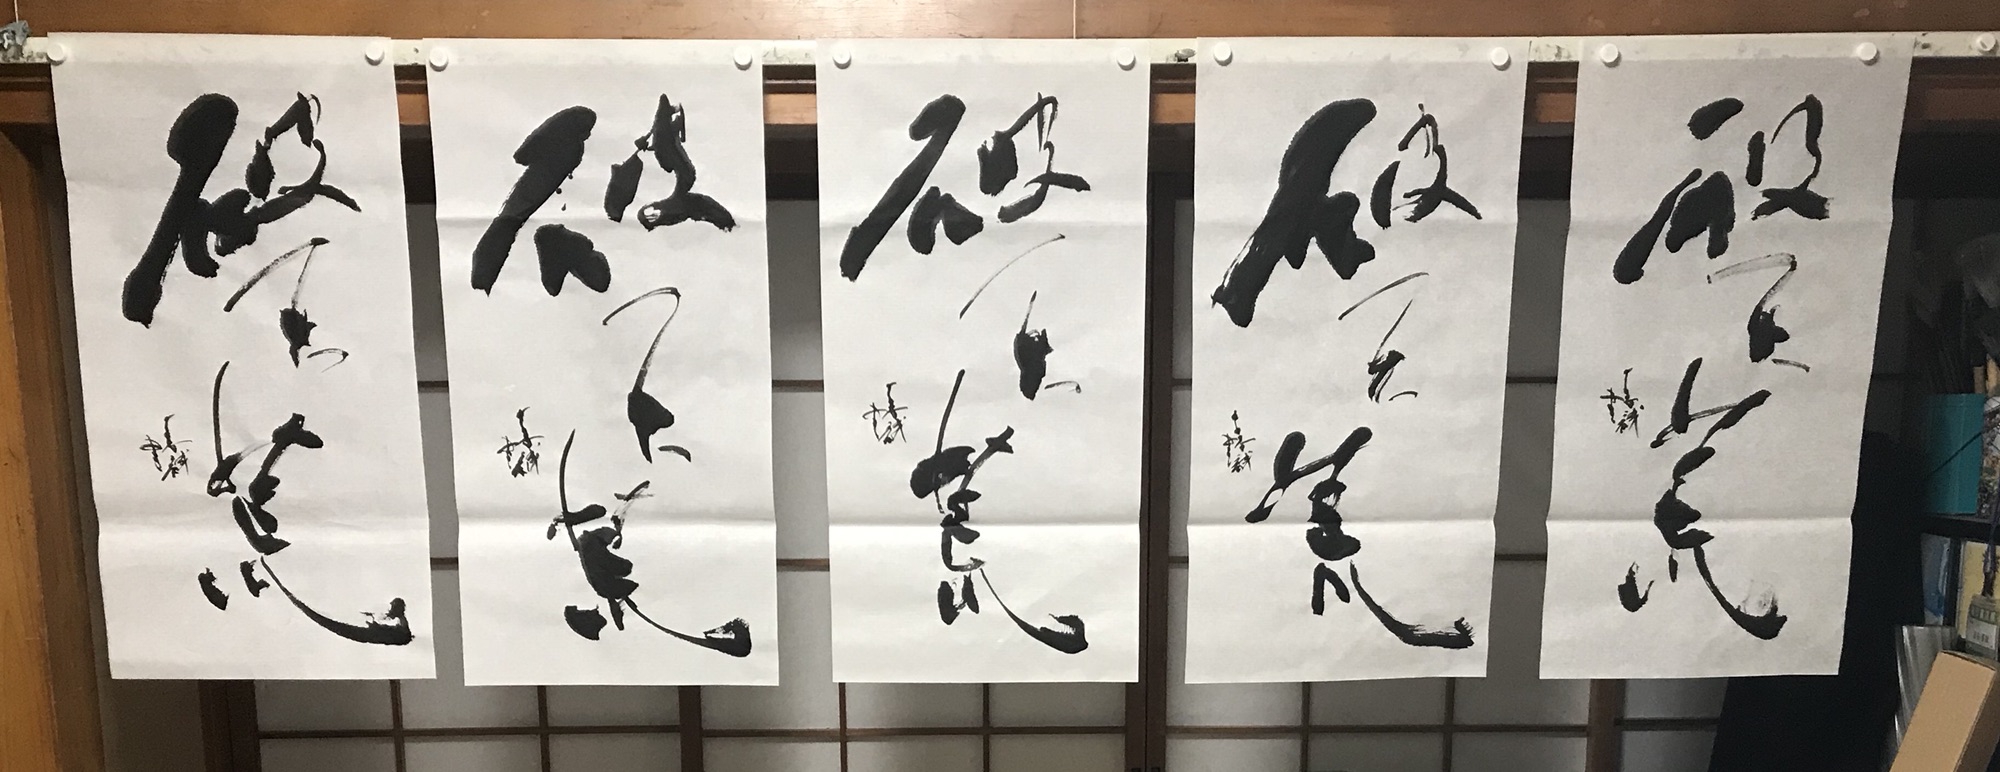 破天荒
破天荒
破天荒
破天荒
破天荒